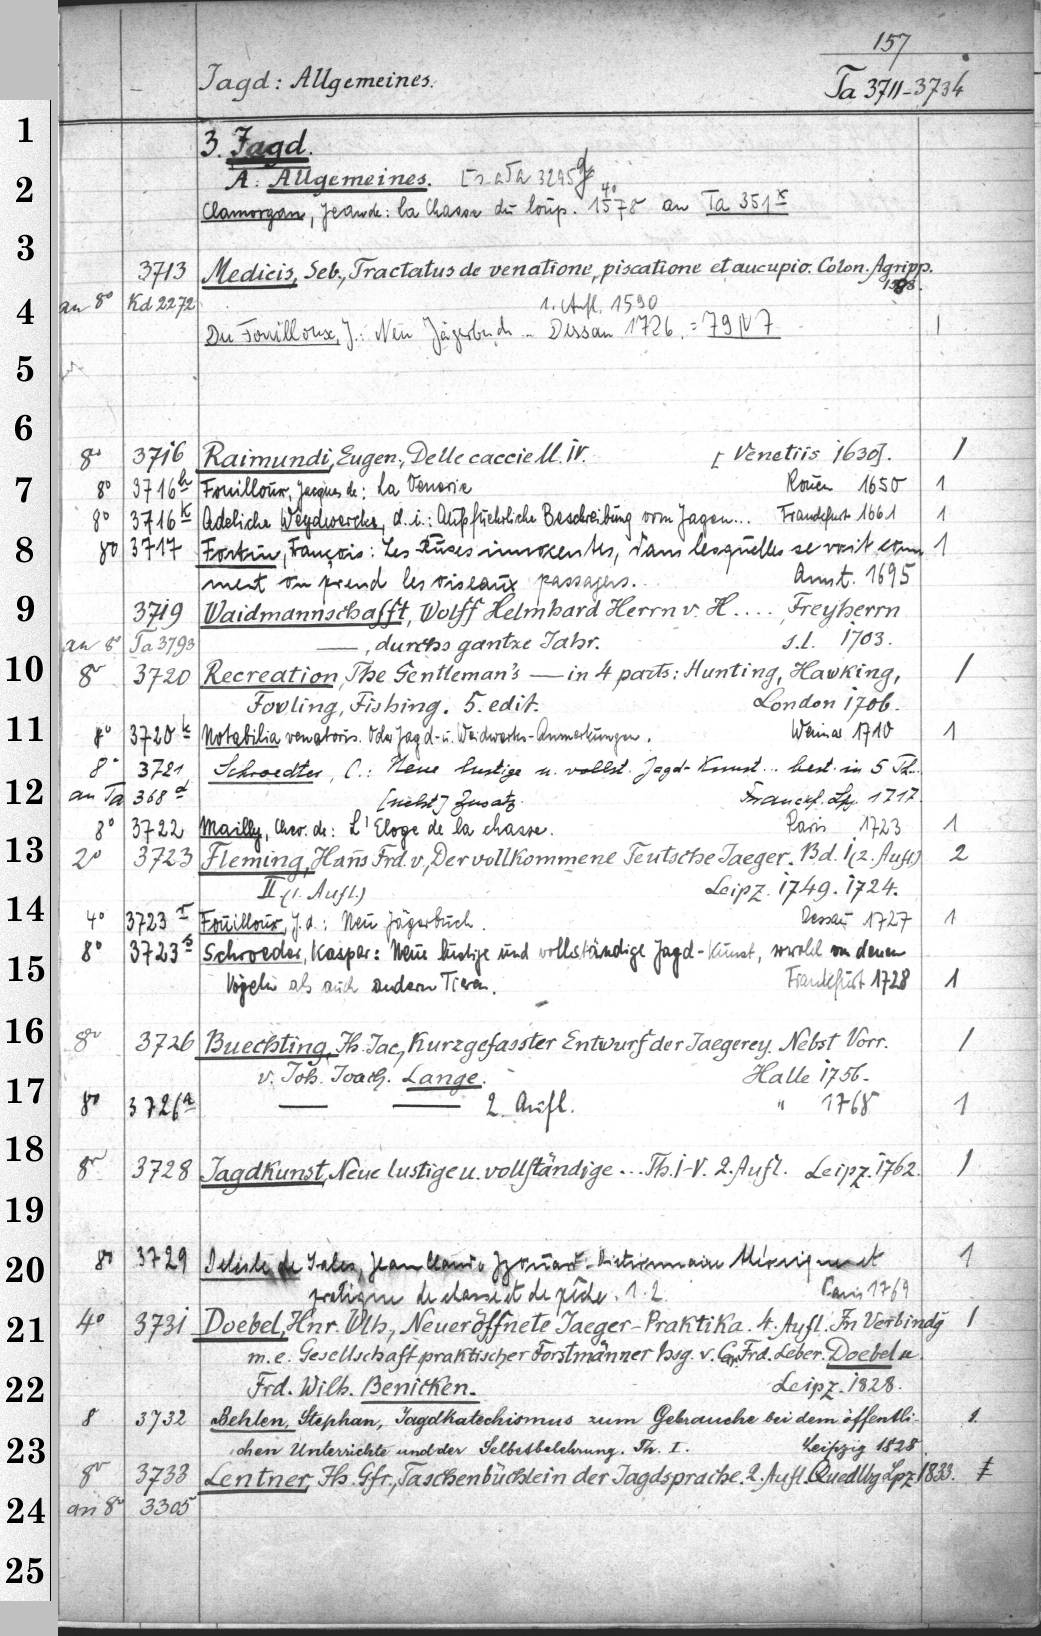 157
Jagd: Allgemeines.
Ta 3711-3734
1
3. Jagd.
2
A: Allgemeines.
Clamorgan, Jean de: la Chasse du loup. 4° 1578 an Ta 351 x
3
3713 Medicis, Seb., Tractatus de venatione, piscatione et aucupio. Colon. Agripp.
an 8° Kd 2272 1. Aufl. 1590
4
Du Fouilloux, J.: Neu Jägerbuch - Dessau 1726. = 79 N 7 1
5
6
8° 3716 Raimundi, Eugen., Delle caccie ll. IV. [Venetiis 1630]. 1
7
8° 3716 h Fouilloux, Jacques de: La Venerie Rouen 1650 1
8° 3716 k Adeliche Weydwercke, d. i.: Außführliche Beschreibung vom Jagen... Franckfurt 1661 1
8
8° 3717 Fortin, François: Les Ruses innocentes, dans lesquelles se voit com 1
ment on prend les oiseaux passagers. Amst. 1695
9
3719 Waidmannschafft, Wolff Helmhard Herrn v. H.... Freyherrn
an 8° Ta 3793 —, durchs gantze Jahr. s.l. 1703.
10
8° 3720 Recreation, The Gentleman's — in 4 parts: Hunting, Hawking, 1
Fowling, Fishing. 5. edit. London 1706.
11
8° 3720 k Notabilia venatoris. Oder Jagd- u. Weidwerks-Anmerkungen. Weimar 1710 1
8° 3721, Schroedter, C.: Neue lustige u. vollst. Jagd-Kunst... best. in 5 Th..
12
an Ta 368 d [nebst] Zusatz. Franckf. Lpz. 1717.
8° 3722 Mailly, Chev. de: L'Eloge de la chasse. Paris 1723 1
13
2° 3723 Fleming, Hans Frd. v., Der vollkommene Teutsche Jaeger. Bd. I (2. Aufl.) 2
II (1. Aufl.) Leipz. 1749. 1724.
14
4° 3723 r Fouilloux, J. d.: Neu Jägerbuch. Dessau 1727 1
8° 3723 s Schroeder, Kaspar: Neue lustige und vollständige Jagd-Kunst, sowohl von denen
15
Vögeln als auch andern Tieren. Frankfurt 1728 1
16
8° 3726 Buechting, Jh. Jac., Kurzgefasster Entwurf der Jaegerey. Nebst Vorr. 1
v. Joh. Joach. Lange. Halle 1756.
17
8° 3726 a — — 2. Aufl. " 1768 1
18
8° 3728 Jagdkunst, Neue lustige u. vollständige ... Th. I-V. 2. Aufl. Leipz. 1762. 1
19
8° 3729 Delisle de Sales, Jean Claude Izouard. Dictionnaire théorique et 1
20
pratique de chasse et de pêche. 1. 2. Paris 1769
21
4° 3731 Doebel, Hnr. Wlh., Neueröffnete Jaeger-Praktika. 4. Aufl. In Verbindg 1
m. e. Gesellschaft praktischer Forstmänner hsg. v. Frd. Leber. Doebel u.
22
Frd. Wilh. Benicken. Leipz. 1828.
8 3732 Behlen, Stephan, Jagdkatechismus zum Gebrauche bei dem öffentli- 1.
23
chen Unterrichte und der Selbstbelehrung. Th. I. Leipzig 1828.
8° 3733 Lentner, Jh. Gfr., Taschenbüchlein der Jagdsprache. 2. Aufl. Quedlbg Lpz 1833. 1
24
an 8° 3305
25